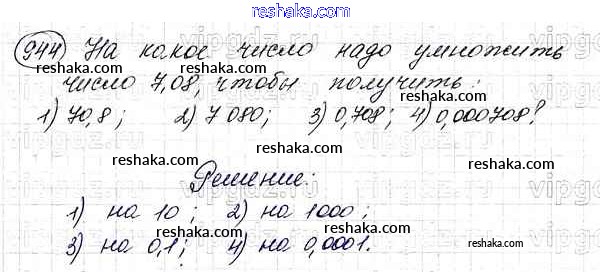 reshaka.com
944 На какое число надо умножить
число 7,08, чтобы получить:
1) 70,8; 2) 7 080; 3) 0,708; 4) 0,000708?
reshaka.com reshaka.com
Решение:
reshaka.com
1) на 10; 2) на 1000;
3) на 0,1; 4) на 0,0001.
reshaka.com reshaka.com